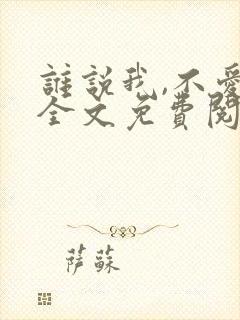 誰說我,不愛
全文免費閱
萨蘇